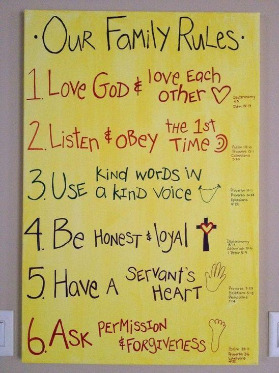 ·Our Family Rules·
1. Love God & love Each
other
2. Listen & Obey the 1st
Time
3. Use kind words in
a kind voice
4. Be Honest & loyal
5. Have A Servant's
Heart
6. Ask permission
& Forgiveness